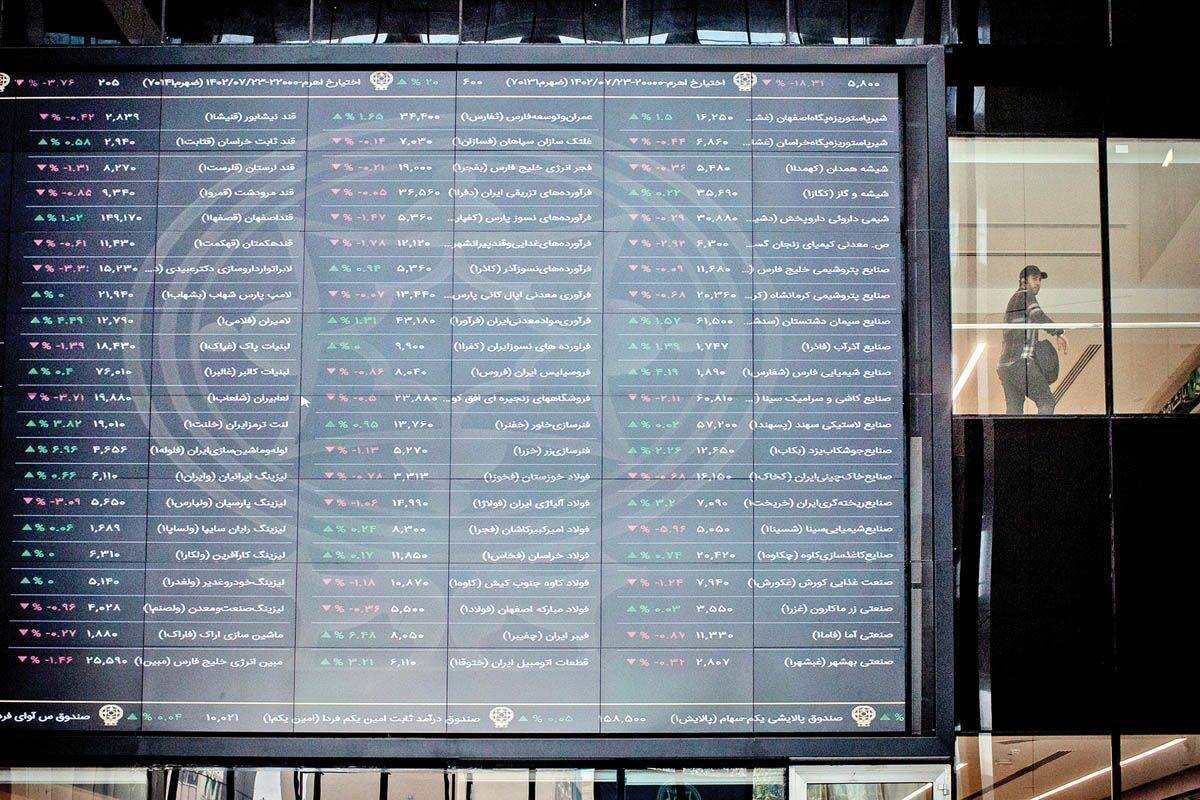 ۵,۸۰۰ ▼ % -۱۸.۳۱ اختیارخ اهرم-۲۰۰۰۰-۱۴۰۲/۰۷/۲۳ (ضهرم۷۰۱۳۱) ۶۰۰ ▲ % ۲۰ اختیارخ اهرم-۲۲۰۰۰-۱۴۰۲/۰۷/۲۳ (ضهرم۷۰۱۴۱) ۲۰۵ ▼ % -۳.۷۶
شیرپاستوریزه‌پگاه‌اصفهان (غش... ۱۶,۲۵۰ ▲ % ۱.۵ عمران‌وتوسعه‌فارس (ثفارس۱) ۳۴,۴۰۰ ▲ % ۱.۶۵ قند نیشابور (قنیشا۱) ۲,۸۳۹ ▼ % -۰.۴۲
شیرپاستوریزه‌پگاه‌خراسان (غشا... ۶,۸۶۰ ▼ % -۰.۴۴ غلتک سازان سپاهان (فسازان۱) ۷,۰۳۰ ▼ % -۰.۱۴ قند ثابت خراسان (قثابت۱) ۲,۹۴۰ ▲ % ۰.۵۸
شیشه همدان (کهمدا۱) ۵,۴۸۰ ▼ % -۰.۳۶ فجر انرژی خلیج فارس (بفجر۱) ۱۹,۰۰۰ ▼ % -۰.۲۱ قند لرستان (قلرست۱) ۸,۲۷۰ ▼ % -۱.۳۱
شیشه و گاز (کگاز۱) ۳۵,۶۹۰ ▲ % ۰.۲۲ فرآورده‌های تزریقی ایران (دفرا۱) ۳۶,۵۶۰ ▼ % -۰.۰۵ قند مرودشت (قمرو۱) ۹,۳۴۰ ▼ % -۰.۸۵
شیمی داروئی داروپخش (دشی... ۳۰,۸۸۰ ▼ % -۰.۲۹ فرآورده‌های نسوز پارس (کفپار... ۵,۳۶۰ ▼ % -۱.۴۷ قنداصفهان (قصفها۱) ۱۴۹,۱۷۰ ▲ % ۱.۰۲
ص. معدنی کیمیای زنجان گس... ۶,۳۰۰ ▼ % -۲.۹۲ فرآورده‌های‌غذایی‌وقندپیرانشهر... ۱۲,۱۲۰ ▼ % -۱.۷۸ قندهکمتان (قهکمت۱) ۱۱,۴۳۰ ▼ % -۰.۶۱
صنایع پتروشیمی خلیج فارس (... ۱۱,۶۸۰ ▼ % -۰.۰۹ فرآورده‌های‌نسوزآذر (کاذر۱) ۵,۳۶۰ ▲ % ۰.۹۴ لابراتوارداروسازی دکترعبیدی (د... ۱۵,۲۳۰ ▼ %
صنایع پتروشیمی کرمانشاه (کر... ۲۰,۳۶۰ ▼ % -۰.۶۸ فرآوری معدنی اپال کانی پارس... ۱۳,۴۴۰ ▼ % -۰.۰۷ لامپ پارس شهاب (بشهاب۱) ۲۱,۹۴۰ ▲ % ۰
صنایع سیمان دشتستان (سدش... ۶۱,۵۰۰ ▲ % ۱.۵۷ فرآوری‌موادمعدنی‌ایران (فرآور۱) ۴۳,۱۸۰ ▲ % ۱.۳۱ لامیران (فلامی۱) ۱۲,۷۹۰ ▲ % ۴.۴۹
صنایع آذرآب (فاذر۱) ۱,۷۴۷ ▲ % ۱.۳۹ فراورده های نسوزایران (کفرا۱) ۹,۹۰۰ ▲ % ۰ لبنیات پاک (غپاک۱) ۱۸,۴۳۰ ▼ % -۱.۳۹
صنایع شیمیایی فارس (شفارس۱) ۱,۸۹۰ ▲ % ۴.۱۹ فروسیلیس ایران (فروس۱) ۸,۰۴۰ ▼ % -۰.۸۶ لبنیات کالبر (غالبر۱) ۷۶,۰۱۰ ▲ % ۰.۴
صنایع کاشی و سرامیک سینا (... ۶۰,۸۱۰ ▼ % -۲.۱۱ فروشگاههای زنجیره ای افق کو... ۲۳,۸۸۰ ▼ % -۰.۵ لعابیران (شلعاب۱) ۱۹,۸۸۰ ▼ % -۳.۷۱
صنایع لاستیکی سهند (پسهند۱) ۵۷,۲۰۰ ▲ % ۰.۰۲ فنرسازی‌خاور (خفنر۱) ۱۳,۷۶۰ ▲ % ۰.۹۵ لنت ترمزایران (خلنت۱) ۱۹,۰۱۰ ▲ % ۳.۸۲
صنایع‌جوشکاب‌یزد (بکاب۱) ۱۲,۶۵۰ ▲ % ۲.۲۶ فنرسازی‌زر (خزر۱) ۵,۲۷۰ ▼ % -۱.۱۳ لوله‌وماشین‌سازی‌ایران (فلوله۱) ۴,۶۵۶ ▲ % ۶.۹۶
صنایع‌خاک‌چینی‌ایران (کخاک۱) ۱۶,۱۵۰ ▼ % -۰.۶۸ فولاد خوزستان (فخوز۱) ۳,۳۱۳ ▼ % -۰.۷۸ لیزینگ ایرانیان (ولیران۱) ۶,۱۱۰ ▲ % ۰.۶۶
صنایع‌ریخته‌گری‌ایران (خریخت۱) ۷,۰۹۰ ▲ % ۳.۲ فولاد آلیاژی ایران (فولاژ۱) ۱۴,۹۹۰ ▼ % -۱.۰۶ لیزینگ پارسیان (ولپارس۱) ۵,۶۵۰ ▼ % -۳.۰۹
صنایع‌شیمیایی‌سینا (شسینا۱) ۵,۰۵۰ ▼ % -۵.۹۶ فولاد امیرکبیرکاشان (فجر۱) ۸,۳۰۰ ▲ % ۰.۲۴ لیزینگ رایان سایپا (ولساپا۱) ۱,۶۸۹ ▲ % ۰.۰۶
صنایع‌کاغذسازی‌کاوه (چکاوه۱) ۲۰,۴۲۰ ▲ % ۰.۷۴ فولاد خراسان (فخاس۱) ۱۱,۸۵۰ ▲ % ۰.۱۷ لیزینگ کارآفرین (ولکار۱) ۶,۳۱۰ ▲ % ۰
صنعت غذایی کورش (غکورش۱) ۷,۹۴۰ ▼ % -۱.۲۴ فولاد کاوه جنوب کیش (کاوه۱) ۱۰,۸۷۰ ▼ % -۱.۱۸ لیزینگ‌خودروغدیر (ولغدر۱) ۵,۱۴۰ ▲ % ۰
صنعتی زر ماکارون (غزر۱) ۳,۵۵۰ ▲ % ۰.۰۳ فولاد مبارکه اصفهان (فولاد۱) ۵,۵۰۰ ▼ % -۰.۳۶ لیزینگ‌صنعت‌ومعدن (ولصنم۱) ۴,۰۲۸ ▼ % -۰.۹۶
صنعتی آما (فاما۱) ۱۱,۳۳۰ ▼ % -۰.۸۷ فیبر ایران (چفیبر۱) ۸,۰۵۰ ▲ % ۶.۴۸ ماشین سازی اراک (فاراک۱) ۱,۸۸۰ ▼ % -۰.۲۷
صنعتی بهشهر (غبشهر۱) ۲,۸۰۷ ▼ % -۰.۳۲ قطعات اتومبیل ایران (ختوقا۱) ۶,۱۱۰ ▲ % ۳.۲۱ مبین انرژی خلیج فارس (مبین۱) ۲۵,۵۹۰ ▼ % -۱.۴۶
▲ % صندوق پالایشی یکم-سهام (پالایش۱) ۱۵۸,۵۰۰ ▲ % ۰.۰۵ صندوق درآمد ثابت امین یکم فردا (امین یکم۱) ۱۰,۰۲۱ ▲ % ۰.۰۴ صندوق س آوای